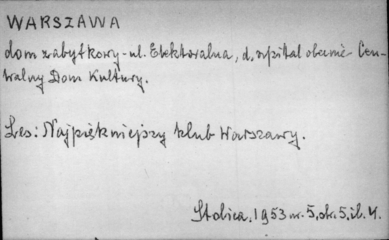 WARSZAWA
dom zabytkowy - ul. Elektoralna, d. szpital obecnie Cen-
tralny Dom Kultury.
Les: Najpiękniejszy klub Warszawy.
Stolica, 1953 nr. 5, str. 5, il. 4.